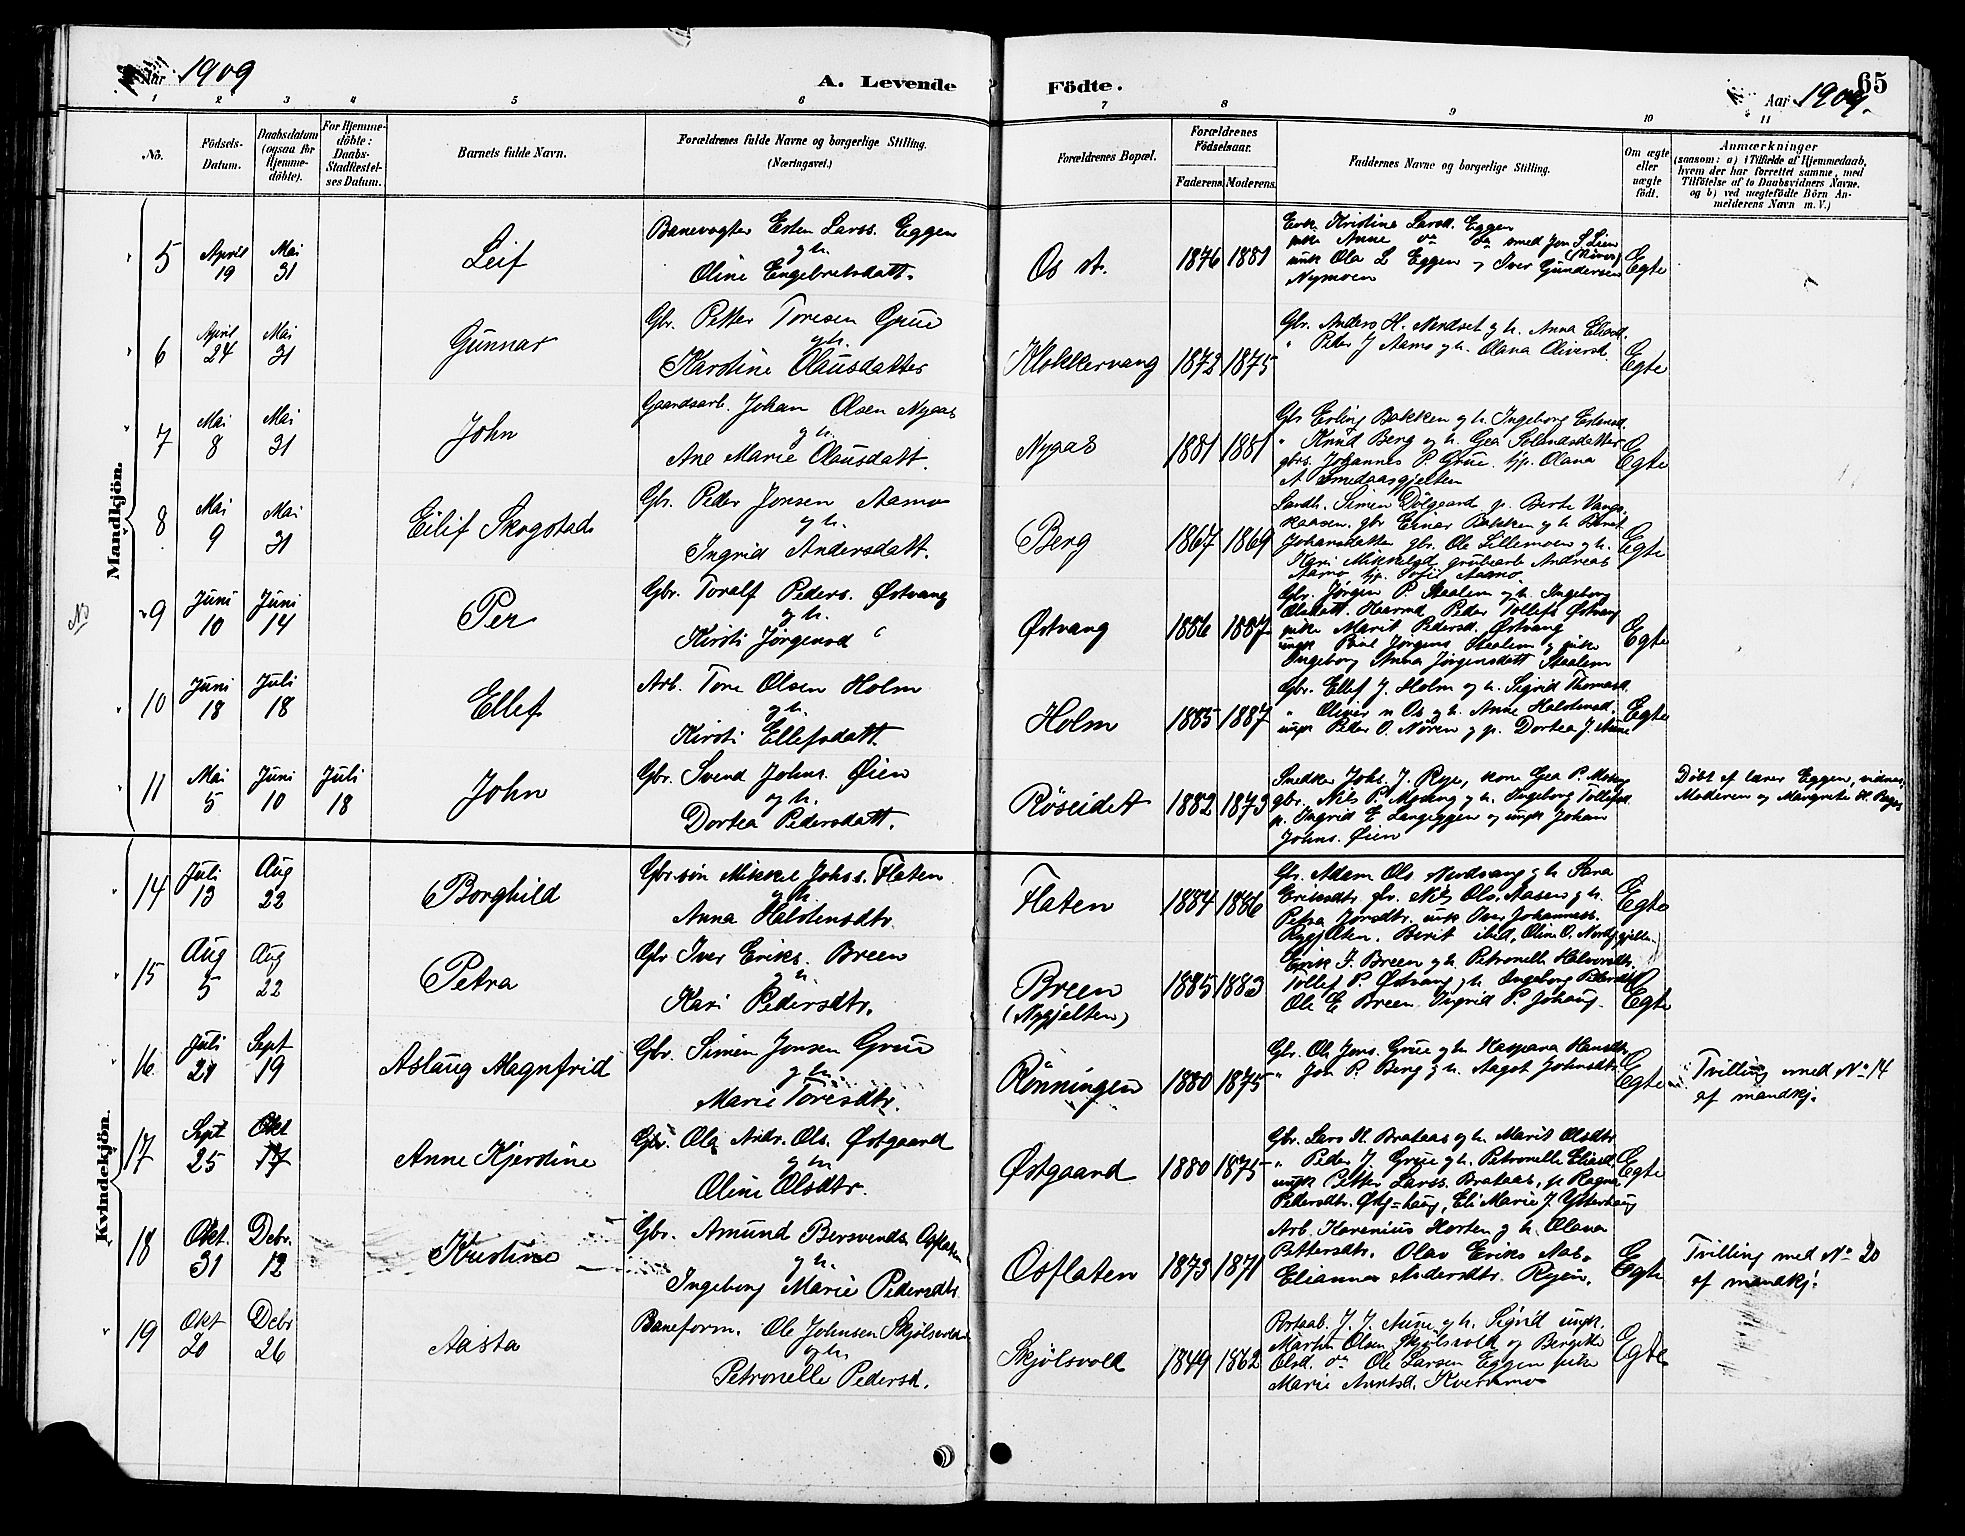 Aar 1909
A. Levende Födte.
Aar 1909.
65
1 2 3 4 5 6 7 8 9 10 11
No.
Födsels-Datum.
Daabsdatum (ogsaa for Hjemme-döbte).
For Hjemme-döbte: Daabs-Stadfæstel-ses Datum.
Barnets fulde Navn.
Forældrenes fulde Navne og borgerlige Stilling.
(Næringsvei.)
Forældrenes Bopæl.
Forældrenes Födselsaar.
Faderens. Moderens.
Faddernes Navne og borgerlige Stilling.
Om ægte eller uægte födt.
Anmærkninger
(saasom: a) i Tilfælde af Hjemmedaab, hvem der har forrettet samme, med Tilföielse af to Daabsvidners Navne. og b) ved uægtefödte Börn An-melderens Navn m. V.)
Mandkjön.
5 April 19 Mai 31 Leif
Banevogter Esten Larss. Eggen
g h.
Oline Engebretsdatt.
Os st. 1876 1881
Kristine Larsd. Eggen
pike Anne do do smed Jon S Lien
ungk Ola L Eggen, Iver Gundersen
Nymoen
Egte
6 April 24 Mai 31 Gunnar
Gbr. Petter Toresen Grue
g h.
Karoline Olausdatter
Klokkervang 1872 1875
Gbr. Anders H. Nordset g h. Anna Eliasd.
" Peter J Aamo g h. Olana Oliversd.
Egte
7 Mai 8 Mai 31 John
Gaardsarb. Johan Olsen Nygaas
g h.
Ane Marie Olausdatt.
Nygaas 1881 1881
Gbr Erling Bakken g h. Ingeborg Estensd.
" Knud Berg og h. Gea
gbrs. Johannes P. Grue. tjp. Olana
A Smedaasgjelten
Egte
8 Mai 9 Mai 31 Eilif Skogstad
Gbr. Peder Jonsen Aamo
g h.
Ingrid Andersdatt.
Berg 1867 1869
Simen Dölgaard p. Berte Vange
kaasen. gbr Einar Bakken g h Berit
Johansdatter gbr. Ole Lillemoen g h.
Kari Mikkelsd. grubearb Andreas
Aamo tjp. Aamo.
Egte
9 Juni 10 Juni 14 Per
Gbr. Toralf Peders. Østvang
g h.
Kirsti Jørgensd "
Østvang 1886 1887
Gbr. Jørgen P. g h. Ingeborg
Olsdatt. Peder Tollefs Østvang
pike Marit Pedersd. Østvang
ungk Jørgens g pike
Ingeborg Anna Jørgensdatt
Egte
10 Juni 18 Juli 18 Ellef
Arb. Tore Olsen Holm
g h.
Kirsti Ellefsdatt.
Holm 1885 1887
Gbr. Ellef J. Holm g h. Sigrid Thomasd.
" Oliver n Os g h. Anne Halstensd.
ungk Peder O. Nören g p. Dortea J. Aune
Egte
11 Mai 5 Juni 10 Juli 18 John
Gbr. Svend Johns. Øien
og h.
Dortea Pedersdatt.
Røseidet 1882 1873
Snedker Johs. J. Rye, kone Gea P. Moseng
gbr. Nils P. Moseng g h. Ingeborg Tollefsd.
p. Ingrid E Langeggen og ungk Johan
Johns. Øien
Døbt af lærer Eggen, vidner,
Moderen og Margrete H.
Kvindekjön.
14 Juli 13 Aug 22 Borghild
Gbr.søn Mikkel Johss. Flaten
g h.
Anna Halstensdtr.
Flaten 1884 1886
Gbr. Adam Ols Nordvang g h Sara
Eriksdtr. gbr. Nils Ols. Aasen g h.
Petra Jonsdtr. ungk Iver Johanness.
Berit ibid, Oline O. Nordgjelten.
Egte
15 Aug 5 Aug 22 Petra
Gbr Iver Eriks. Breen
g h.
Kari Pedersdtr.
Breen
(Nygjelten) 1885 1883
Erik I. Breen g h Petronelle Halvorsdtr.
Tollef P. Østvang g h Ingeborg Pedersdtr
Ole E Breen, Ingrid P. Johaug.
Egte
16 Juli 21 Sept 19 Aslaug Magnfrid
Gbr. Simen Jonsen Grue
g h.
Marie Toresdtr.
Rönningen 1880 1875
Gbr. Ole Jons. Grue g h Kaspara Hansdtr
" Jon P. Berg g h. Aagot Johnsdtr.
Egte
Tvilling med No 14
af mandkj.
17 Sept 25 Okt 17 Anne Kjerstine
Gbr. Ola Andr. Ols. Østgaard
g h
Oline Olsdtr.
Østgaard 1880 1875
Gbr. Lars H. Brataas g h. Marit Olsdtr.
" Peder J Grue g h. Petronelle Eliasd.
ungk Petter Larss. Brataas, p. Ragna
Pedersdtr. Østg=haug, Eli Marie J. Ysterhaug
Egte
18 Okt. 31 Debr. 12 Kristine
Gbr. Amund Bersvends. Osflaten
g h.
Ingeborg Marie Pedersdtr.
Osflaten 1873 1871
Arb. Karenius Horten g h. Olava
Pettersdtr. Olav Eriks Aas,
Elianna Andersdtr. Ryen.
Egte
Tvilling med No 20
af mandkj.
19 Okt 20 Debr 26 Aasta
Baneform. Ole Johnsen Skjølsvold
og h.
Petronelle Pedersd.
Skjølsvold 1849 1862
J. J. Aune g h. Sigrid ungk.
Martin Olsen Skjølsvold og Bergitte
Olsd. do Ole Larsen Eggen pike
Marie Arntsd. Kvernmo
Egte